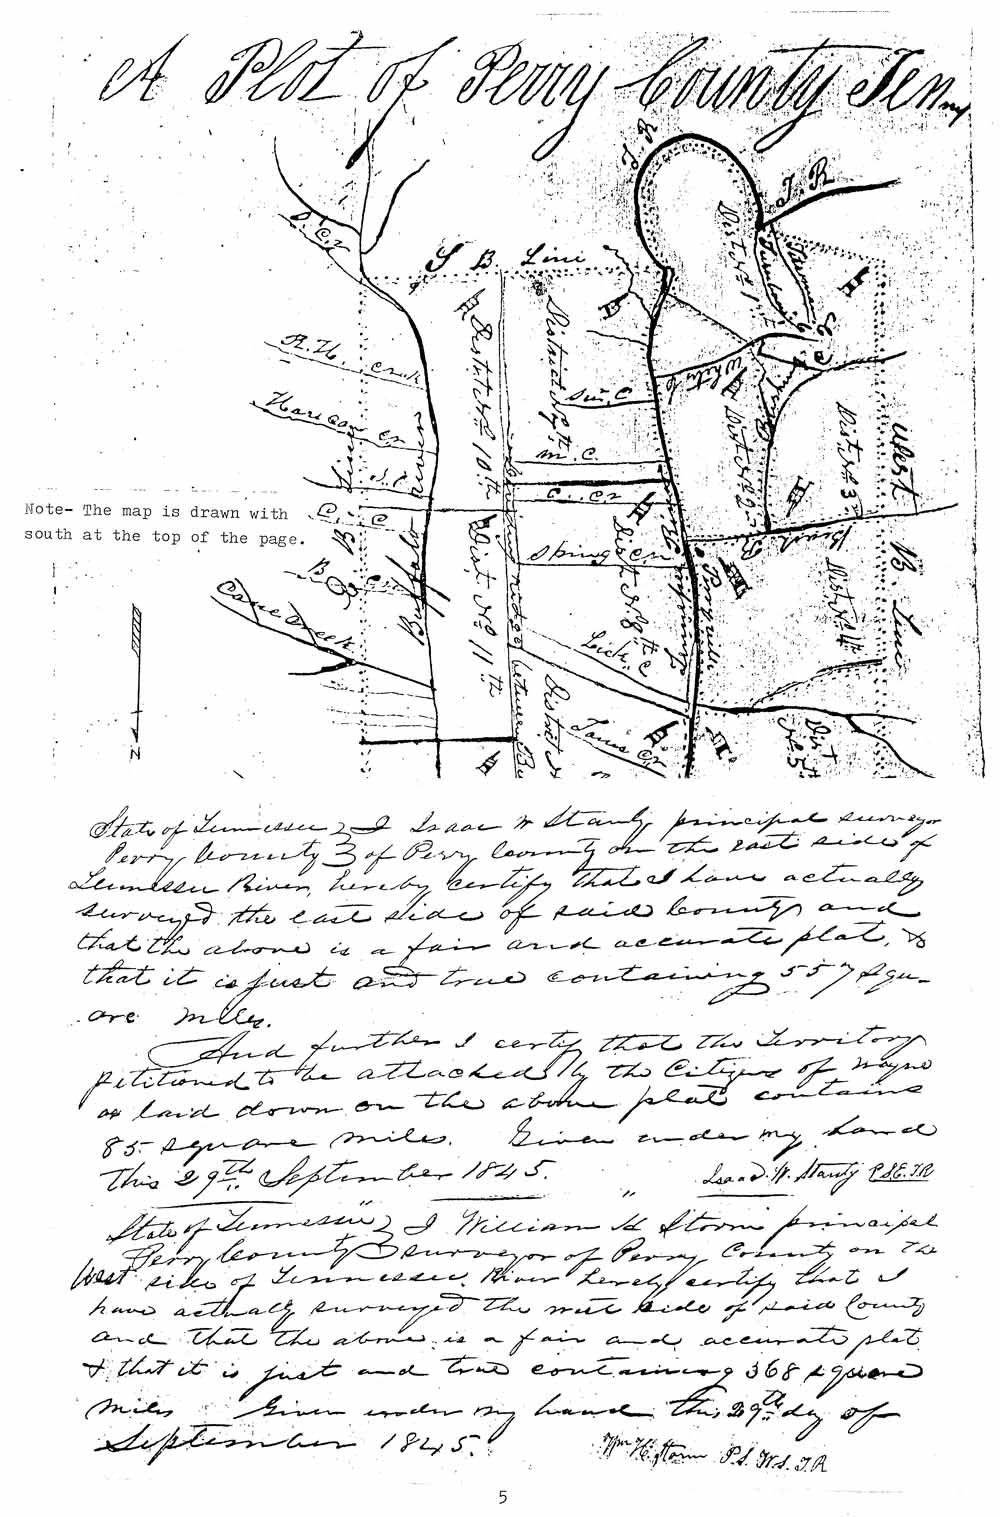 A Plot of Perry County Tenn
T. R
T. R
S. B. Line
Buffalo River
R. H. Creek
Harican Cr
C. C
B Cr
Cane Creek
Distrt No 10th
Dist No 11th
District No 7th
Sin. C
M. C.
C. Cr
Spring Cr
Dist No 9th
Lick C
District N
Toms Cr
Dividing ridge between Bu
Dist No 1st
White C
Dist No 2
Perryville
Dist No 3
Dist No 4th
Dist No 5th
Beech R
West B. Line
Note- The map is drawn with
south at the top of the page.
N
State of Tennessee } I Isaac W Stanly principal surveyor
Perry County } of Perry County on the east side of
Tennessee River, hereby certify that I have actually
surveyed the east side of said County and
that the above is a fair and accurate plat, &
that it is just and true containing 557 squ-
are miles.
And further I certify that the Territory
petitioned to be attached by the Citizens of Wayne
as laid down on the above plat contains
85 square miles. Given under my hand
this 29th September 1845. Isaac W. Stanly P.S.E.T.R
State of Tennessee } I William H Storm principal
Perry County } surveyor of Perry County on the
West side of Tennessee River hereby certify that I
have actually surveyed the west side of said County
and that the above is a fair and accurate plat
& that it is just and true containing 368 square
miles Given under my hand this 29th day of
September 1845.
Wm H. Storm P.S. W.S. T.R
5